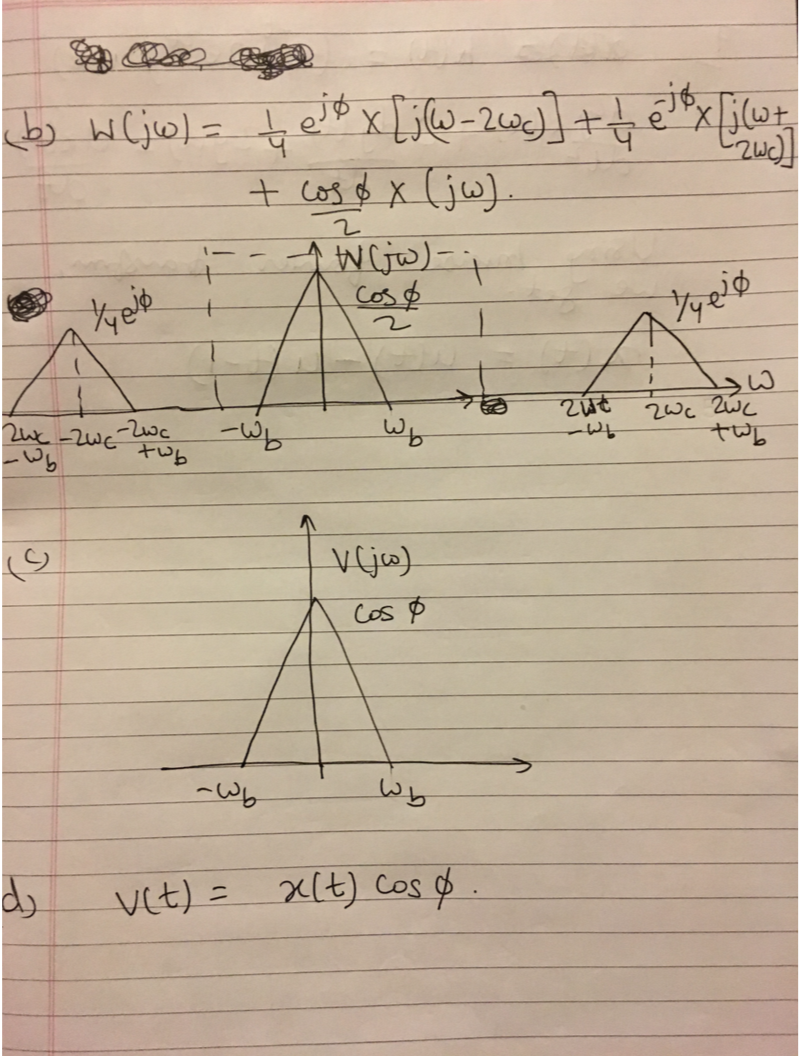 (b) W(jω) = 1/4 e^{jφ} X[j(ω-2ωc)] + 1/4 e^{-jφ} X[j(ω+
2ωc)]
+ cosφ/2 X(jω).
W(jω)
cosφ/2
1/4 e^{jφ}
1/4 e^{jφ}
ω
2ωc -2ωc -2ωc -ωb ωb 2ωc 2ωc
-ωb +ωb -ωb +ωb
(c)
V(jω)
cos φ
-ωb ωb
d) V(t) = x(t) cos φ.